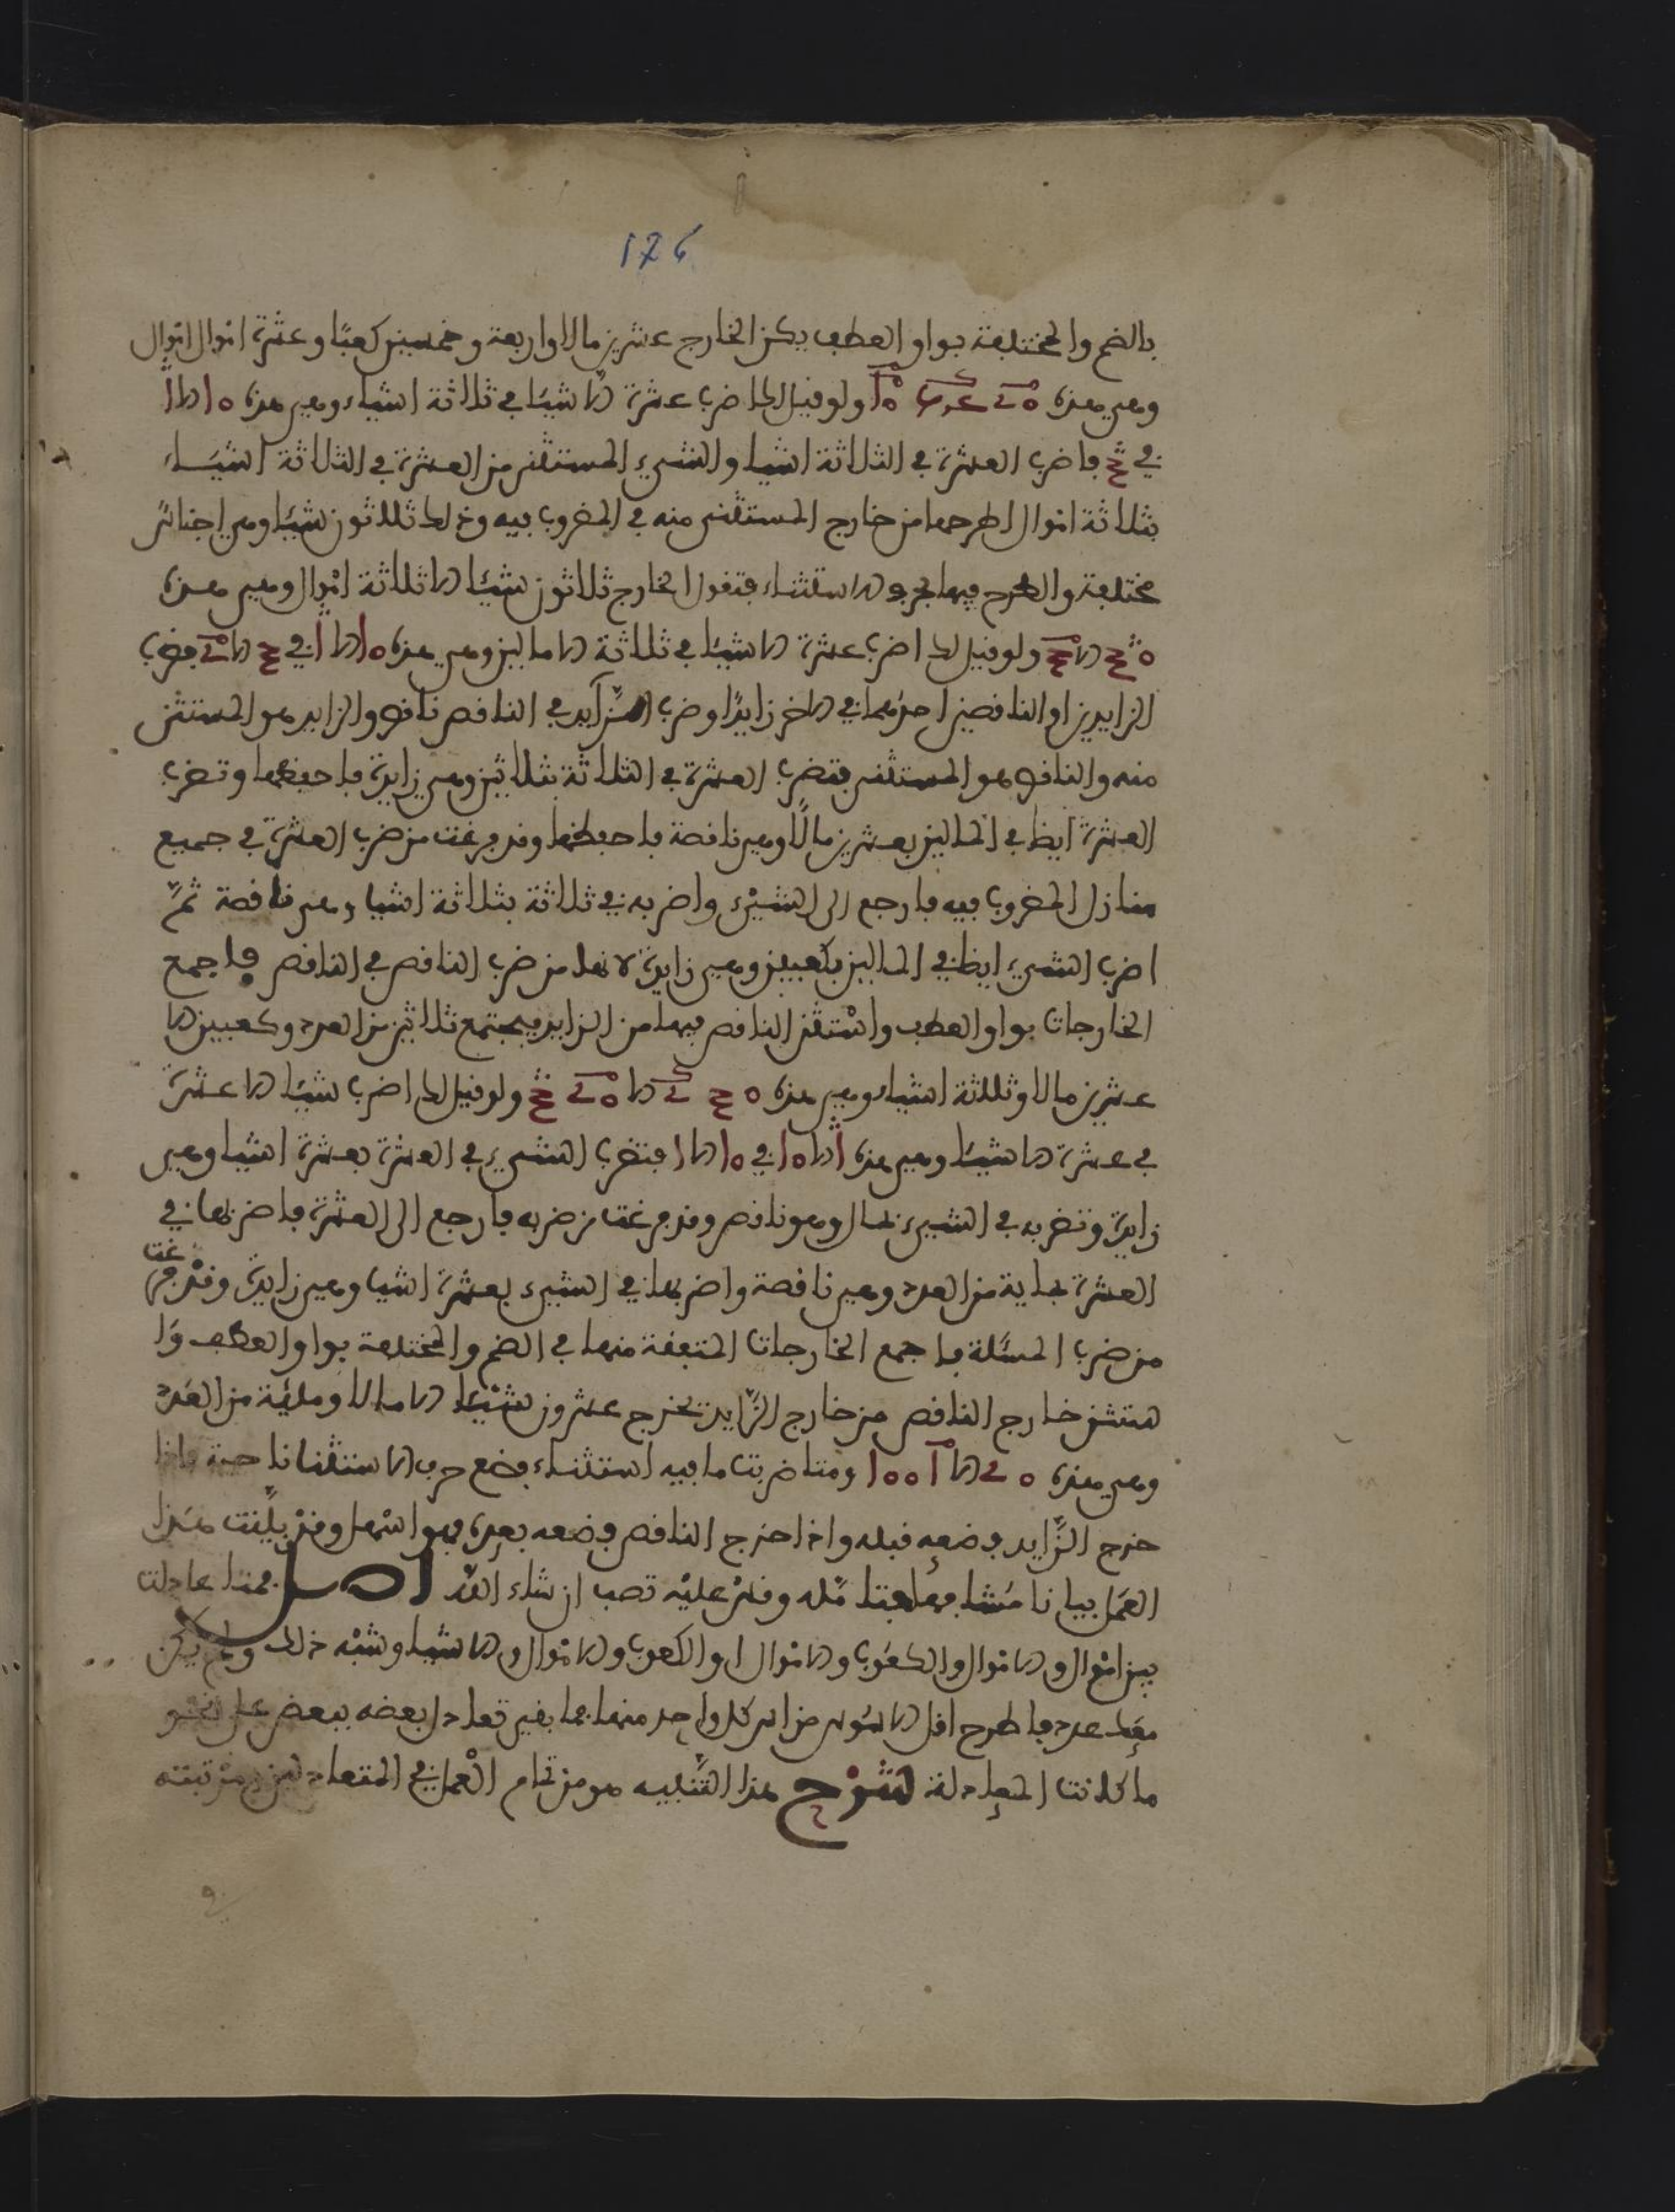 176
بالضم والمختلفة بواو العطف يكن الخارج عشرين مالا واربعة وخمسين كعبا وعشرة اموال اموال
وهي هذه ولو قيل لك اضرب عشرة الا شيئا في ثلاثة اشياء وهي هذه ١٥ الا ١
في ٣ فاضرب العشرة في الثلاثة اشيا والشيء المستثنى من العشرة في الثلاثة اشياء
بثلاثة اموال اطرحها من خارج المستثنى منه في المضروب فيه وذلك ثلاثون شيئا وهي اجناس
مختلفة والطرح فيها بحرف الاستثناء فتقول الخارج ثلاثون شيئا الا ثلاثة اموال وهي هذه
٣٥ الا ٣ ولو قيل لك اضرب عشرة الا شيئا في ثلاثة الا مالين وهي هذه ١٥ الا ١ في ٣ الا ٢ فضرب
الزايدين او الناقصين احدهما في الاخر زايدا وضرب الزايد في الناقص ناقص والزايد هو المستثنى
منه والناقص هو المستثنى فتضرب العشرة في الثلاثة بثلاثين وهي زايدة فاحفظها وتضرب
العشرة ايظا في المالين بعشرين مالا وهي ناقصة فاحفظها وقد فرغت من ضرب العشرة في جميع
منازل المضروب فيه فارجع الى الشيء واضربه في ثلاثة بثلاثة اشيا وهي ناقصة ثم
اضرب الشيء ايظا في المالين بكعبين وهي زايدة لانها من ضرب الناقص في الناقص فاجمع
الخارجات بواو العطف واستثن الناقص فيها من الزايد يجتمع ثلاثين من العدد وكعبين الا
عشرين مالا وثلثة اشياء وهي هذه ٣٥ ٢ الا ٢٥ ٣ ولو قيل لك اضرب شيئا الا عشرة
في عشرة الا شيئا وهي هذه ١ الا ١٥ في ١٥ الا ١ فتضرب الشيء في العشرة بعشرة اشيا وهي
زايدة وتضربه في الشيء بمال وهو ناقص وقد فرغت من ضربه فارجع الى العشرة فاضربها في
العشرة بماية من العدد وهي ناقصة واضربها في الشيء بعشرة اشيا وهي زايدة وقد فرغت
من ضرب المسئلة فاجمع الخارجات المتفقة منها في الضم والمختلفة بواو العطف وا
ستثن خارج الناقص من خارج الزايد يخرج عشرون شيئا الا مالا ومائة من العدد
وهي هذه ٢٥ الا ١ ١٥٥ ومتا ضربت ما فيه استثناء فضع حرف الاستثنا ناحية فاذا
خرج الزايد فضعه قبله واذا خرج الناقص فضعه بعده فهو اسهل وقد بينت هذا
العمل بيانا شافيا فتامله وقس عليه تصب ان شاء الله اصل فمتا عادلت
بين اموال والاموال والكعوب والاموال او الكعوب والاموال والاشيا وشبه ذلك ولم يكن
معك عدد فاطرح اقل الاسوس من اس كل واحد منها فما بقي تعادل بعضه ببعض على نحو
ما كانت المعادلة شرح هذا التنبيه هو من تمام العمل في المتعادلين مرتبته